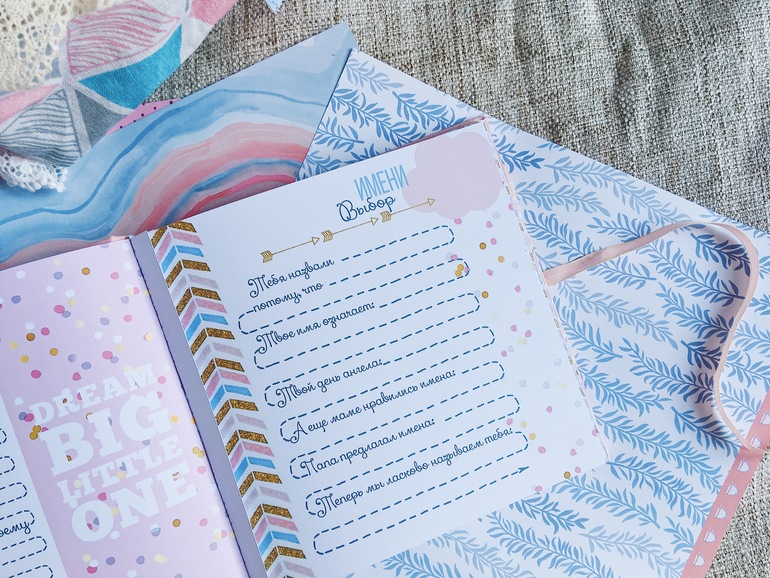 DREAM
BIG
LITTLE
ONE
ИМЕНИ
Выбор
Тебя назвали
потому, что
Твое имя означает:
Твой день ангела:
А еще маме нравились имена:
Папа предлагал имена:
Теперь мы ласково называем тебя: